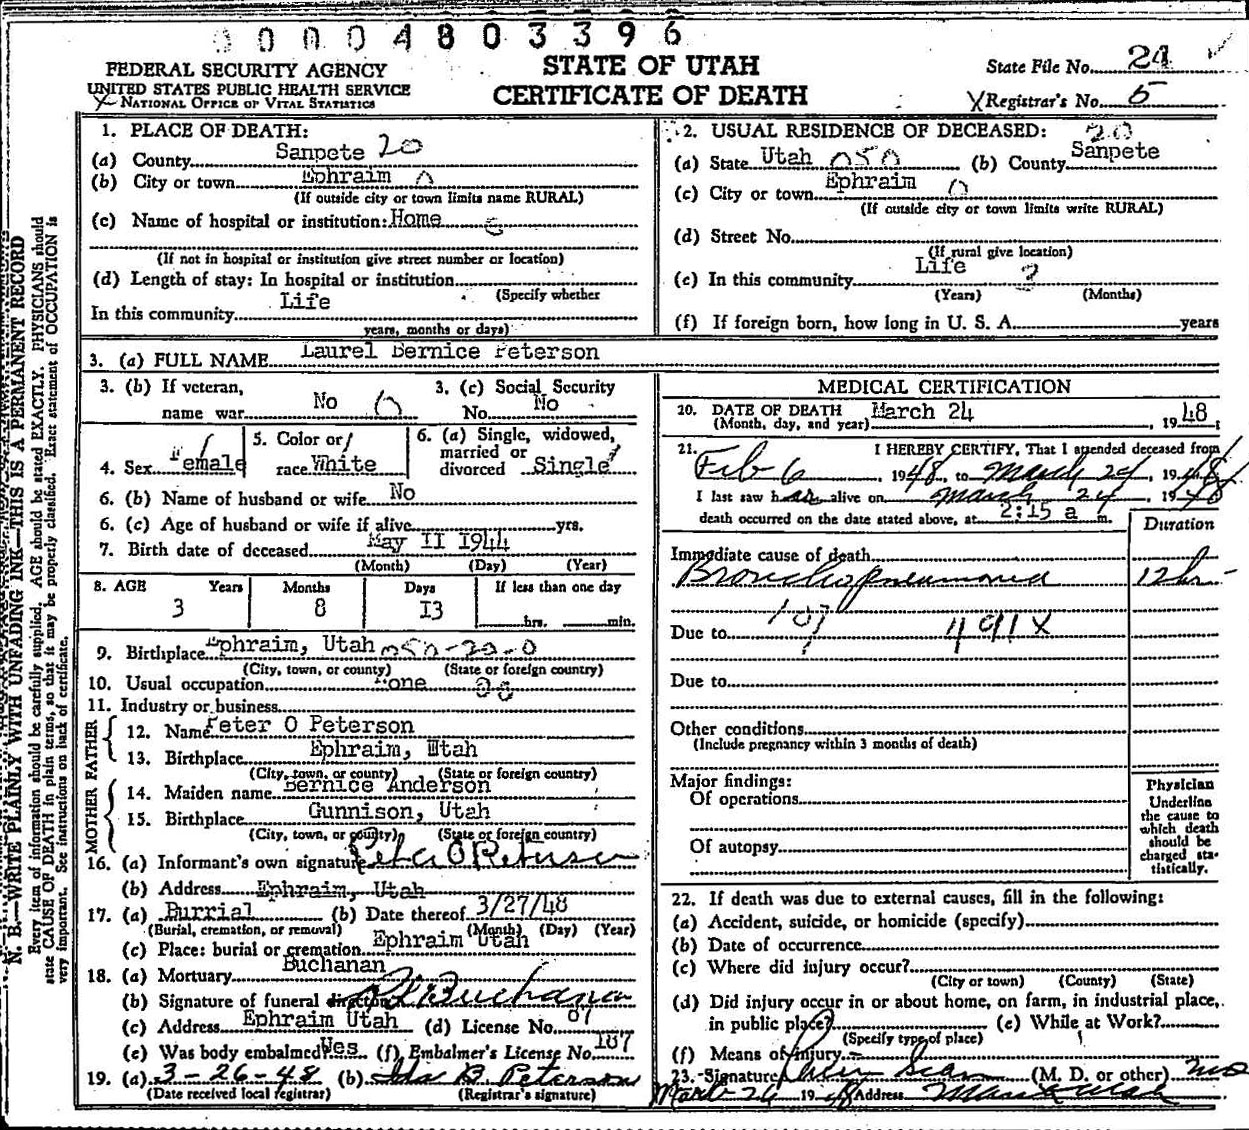 00004803396
FEDERAL SECURITY AGENCY
UNITED STATES PUBLIC HEALTH SERVICE
NATIONAL OFFICE OF VITAL STATISTICS
STATE OF UTAH
CERTIFICATE OF DEATH
State File No. 24
Registrar's No. 5
N. B.—WRITE PLAINLY WITH UNFADING INK—THIS IS A PERMANENT RECORD
Every item of information should be carefully supplied. AGE should be stated EXACTLY. PHYSICIANS should
state CAUSE OF DEATH in plain terms, so that it may be properly classified. Exact statement of OCCUPATION is
very important. See instructions on back of certificate.
1. PLACE OF DEATH:
(a) County Sanpete 20
(b) City or town Ephraim 0
(If outside city or town limits name RURAL)
(c) Name of hospital or institution: Home
(If not in hospital or institution give street number or location)
(d) Length of stay: In hospital or institution
(Specify whether
In this community Life
years, months or days)
2. USUAL RESIDENCE OF DECEASED: 20
(a) State Utah 050 (b) County Sanpete
(c) City or town Ephraim 0
(If outside city or town limits write RURAL)
(d) Street No.
(If rural give location)
(e) In this community Life
(Years) (Months)
(f) If foreign born, how long in U. S. A. years
3. (a) FULL NAME Laurel Bernice Peterson
3. (b) If veteran, name war No
3. (c) Social Security No. No
4. Sex Female
5. Color or race White
6. (a) Single, widowed, married or divorced Single
6. (b) Name of husband or wife No
6. (c) Age of husband or wife if alive yrs.
7. Birth date of deceased May II I944
(Month) (Day) (Year)
8. AGE Years Months Days If less than one day
3 8 I3 hrs. min.
9. Birthplace Ephraim, Utah 050-20-0
(City, town, or county) (State or foreign country)
10. Usual occupation None
11. Industry or business
FATHER
12. Name Peter O Peterson
13. Birthplace Ephraim, Utah
(City, town, or county) (State or foreign country)
MOTHER
14. Maiden name Bernice Anderson
15. Birthplace Gunnison, Utah
(City, town, or county) (State or foreign country)
16. (a) Informant's own signature Peter O Peterson
(b) Address Ephraim, Utah
17. (a) Burrial (b) Date thereof 3/27/48
(Burial, cremation, or removal) (Month) (Day) (Year)
(c) Place: burial or cremation Ephraim Utah
18. (a) Mortuary Buchanan
(b) Signature of funeral director Buchanan
(c) Address Ephraim Utah (d) License No. 87
(e) Was body embalmed? Yes (f) Embalmer's License No. 187
19. (a) 3-26-48 (b) Ida B. Peterson
(Date received local registrar) (Registrar's signature)
MEDICAL CERTIFICATION
20. DATE OF DEATH March 24, 1948;
(Month, day, and year)
21. I HEREBY CERTIFY, That I attended deceased from
Feb 6, 1948, to March 24, 1948
I last saw her alive on March 24 1948
death occurred on the date stated above, at 2:15 a m.
Duration
Immediate cause of death
Bronchopneumonia 12 hr-
107
Due to 491X
Due to
Other conditions
(Include pregnancy within 3 months of death)
Major findings:
Of operations
Of autopsy
Physician
Underline
the cause to
which death
should be
charged sta-
tistically.
22. If death was due to external causes, fill in the following:
(a) Accident, suicide, or homicide (specify)
(b) Date of occurrence
(c) Where did injury occur?
(City or town) (County) (State)
(d) Did injury occur in or about home, on farm, in industrial place,
in public place? (e) While at Work?
(Specify type of place)
(f) Means of injury
23. Signature (M. D. or other) MD
March 26 1948 Address Utah